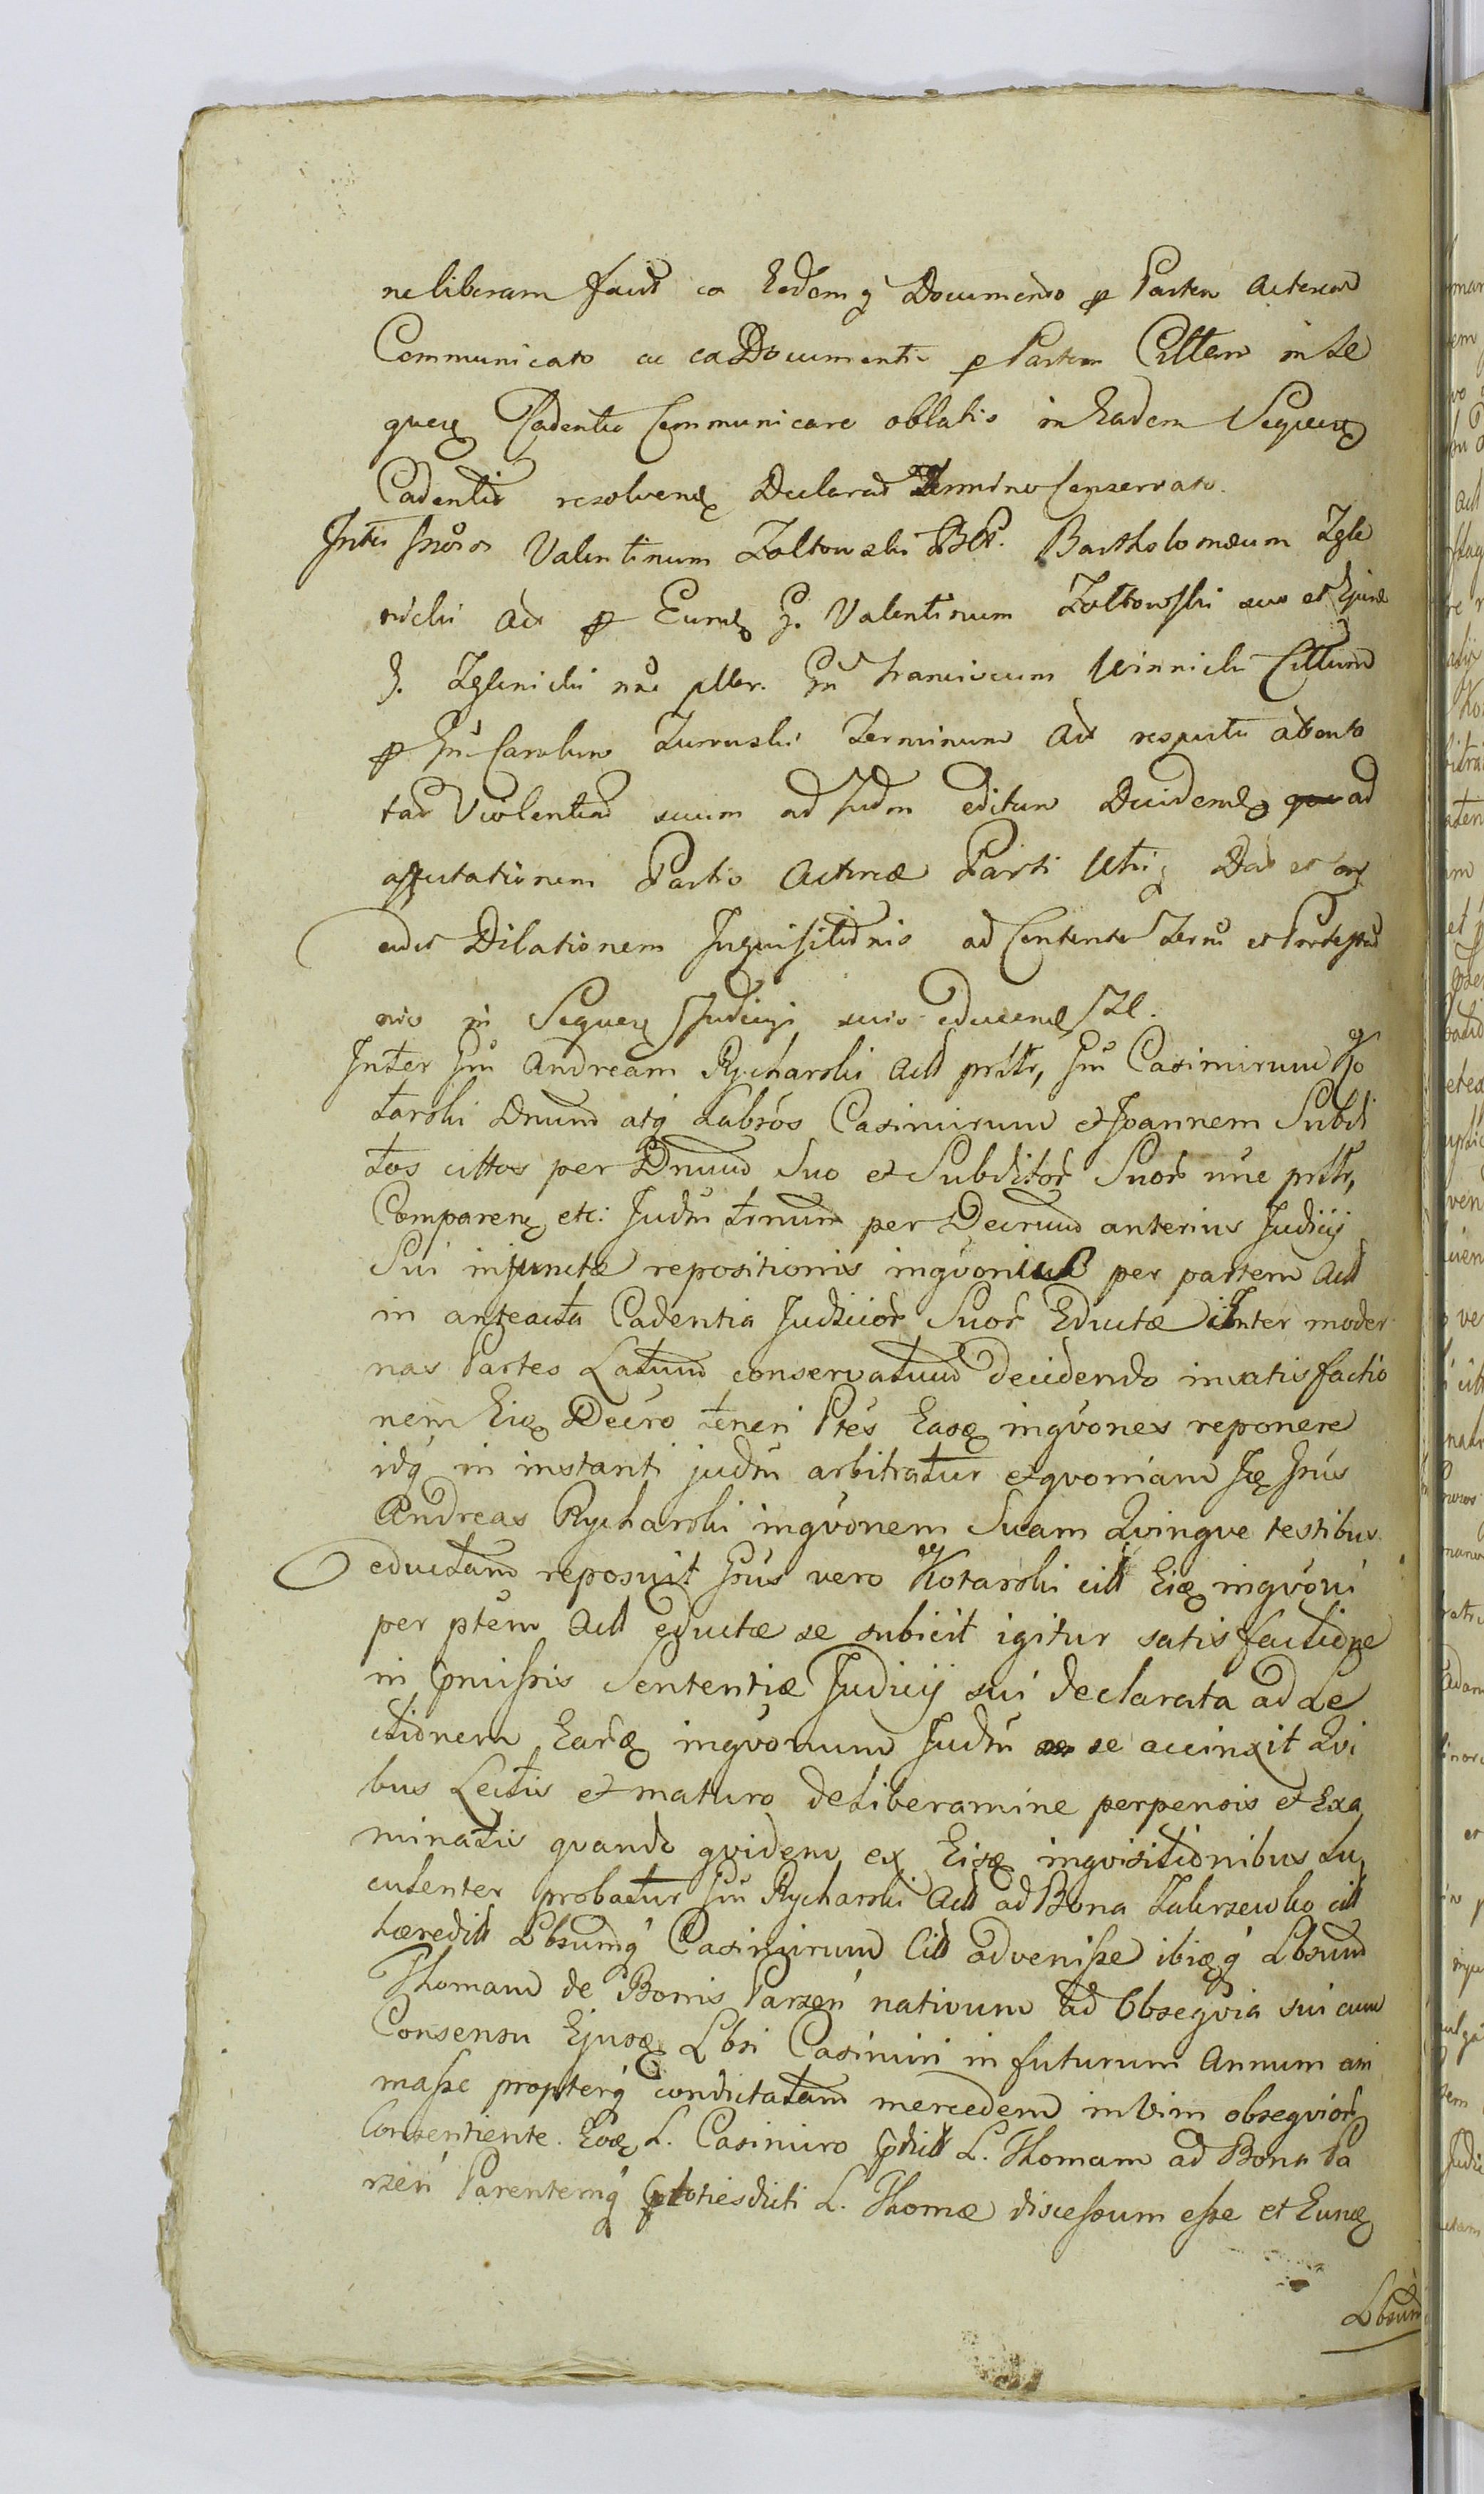 neliberam facit ex Eodemq Documento p Partem Actoream
Communicato ac ex Documentis p Partem Cittam in Se
quen Cadentia Communicare oblatis in Eadem Sequen
Cadentia resolvend Declarat Termino Conservato.
Inter Gnos Valentinum Zoltowski Bartholomæum Zgle
nicki Act p Eund G. Valentinum Zoltowski suo et Ejusd
G. Zglenicki nne Gn Franciscum Winnicki Cittum
p Gn Carolum Zurawski Terminum Act respectu attenta
tar Violentiar suum ad Judm editum Decidend ad
affectationem Partis Actoreæ Parti Utriq Dat et con
cedit Dilationem Inquisitionis ad Contenta Termi et Protestatio
nis in Sequen Judicijs suis educend
Inter Gnu Andream Rycharski Act prstte, Gnu Casimirum Ko
tarski Dnum atq Labros Casimirum et Joannem Subdi
tos cittos per Dnum Suo et Subditor Suor nne prstte,
Comparen etc: Judm trnum per Decrum anterius Judicij
Sui injunctæ repositionis ingvonius per partem Act
in anteacta Cadentia Judicior Suor Eductæ Inter moder
nas Partes Latum conservatum Decidendo in satisfactio
nem Eid Decro teneri Ptes Easd ingvones reponere
idq in instanti judm arbitratur et qvoniam Id Gnus
Andreas Rycharski ingvonem Suam Qvinqve testibus
eductam reposuit Gnus vero Kotarski citt Eid ingvoni
per ptem Act eductæ se subicit igitur satisfactione
in pmissis Sententiæ Judicij sui declarata ad Le
ctionem Eard ingvonum Judm se accinxit Qvi
bus Lectis et maturo deliberamine perpensis et Exa
minatis qvando qvidem ex Eisd inqvisitionibus Lu
culenter probatur Gnu Rycharski Act ad Bona Zakrzewko citt
hæredit Lbsumq Casimirum Citt advenisse ibidq Lbsum
Thomam de Bonis Parzen nativum ad Obseqvia sui cum
Consensu Ejusd Lbsi Casimiri in futurum Annum assi
masse propterq condictatam mercedem in Vim obseqvior
Consentiente Eod L. Casimiro pdict L. Thomam ad Bona Pa
rzen Parentemq ptotiesdicti L. Thomæ discessum esse et Eund
Lbsum